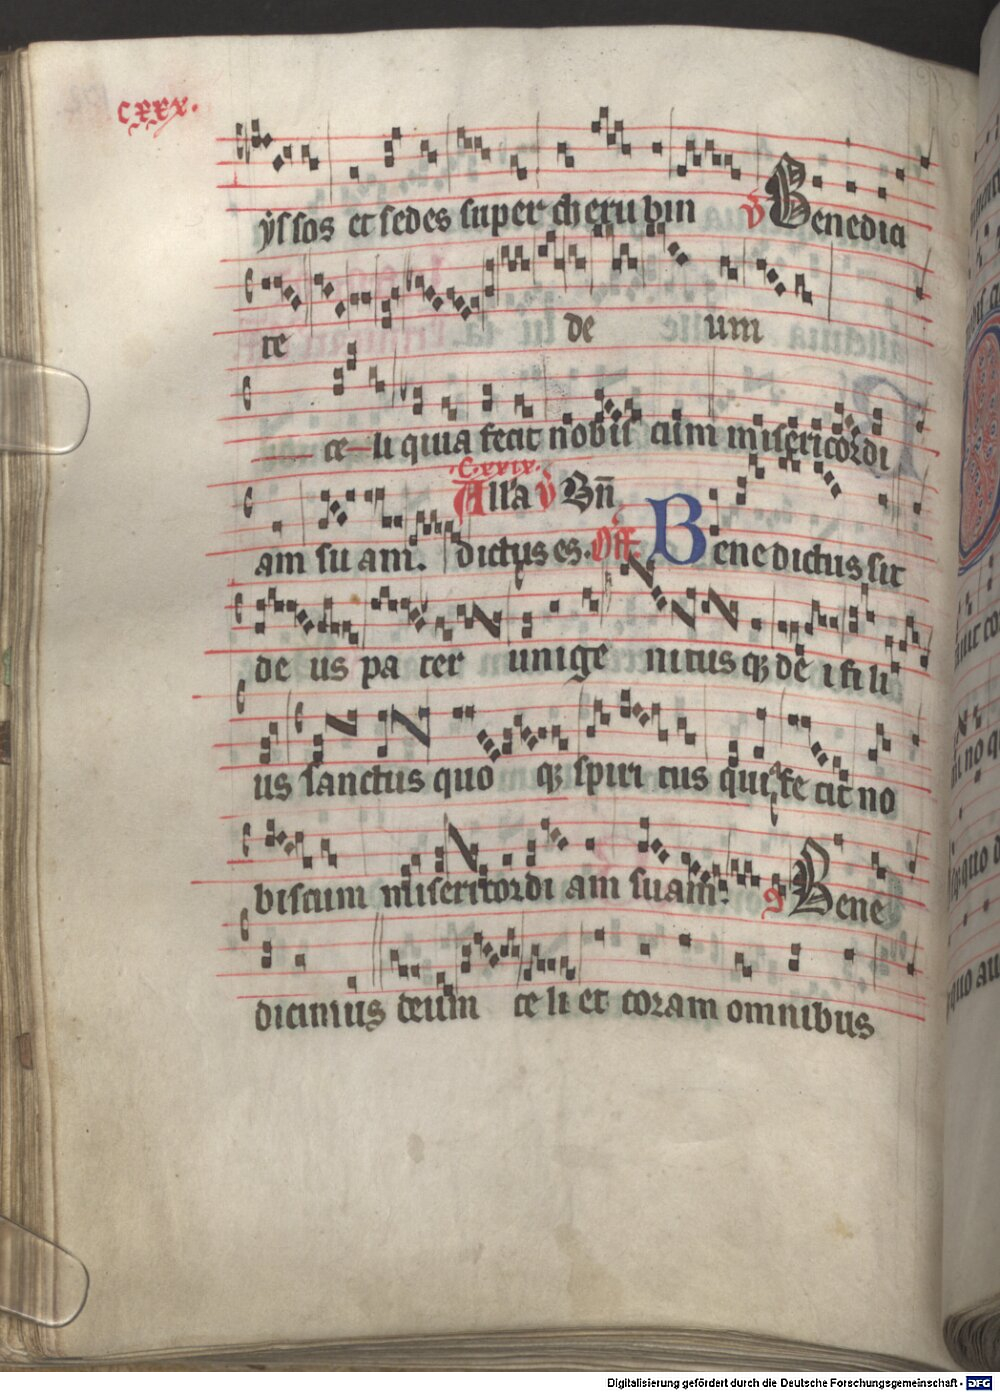 cxxx.
ÿssos et sedes super cherubin v Benedic
te de um
ce li quia fecit nobis cum misericordi
cxxix.
am su am. Alla v Bn̄
dictus es. Off. Benedictus sit
de us pa ter unige nitus qꝫ de i fi li
us sanctus quo qꝫ spiri tus qui fe cit no
biscum misericordi am suam. Bene
dicimus deum ce li et coram omnibus
Digitalisierung gefördert durch die Deutsche Forschungsgemeinschaft - DFG